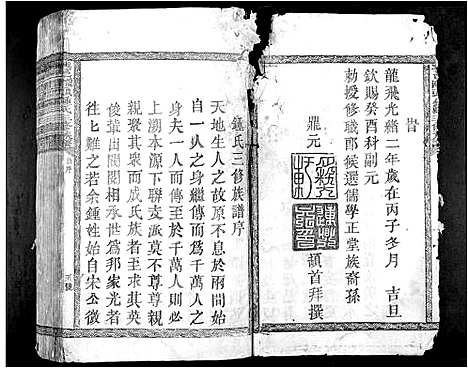 旹
龍飛光緒二年歲在丙子冬月 吉旦
欽賜癸酉科副元
勅授修職郎候選儒學正堂族裔孫
鼎元 頓首拜撰
鍾氏三修族譜序
天地生人之故本不息於兩間始
自一人之身繼傳而為千萬人之
身夫一人而傳至於千萬人則必
上溯本源下聯支派莫不尊尊親
親聚其而成氏族者求其英
俊輩出閥閱相承世為邦家光者
往匕難之若余鍾姓始自宋公徵